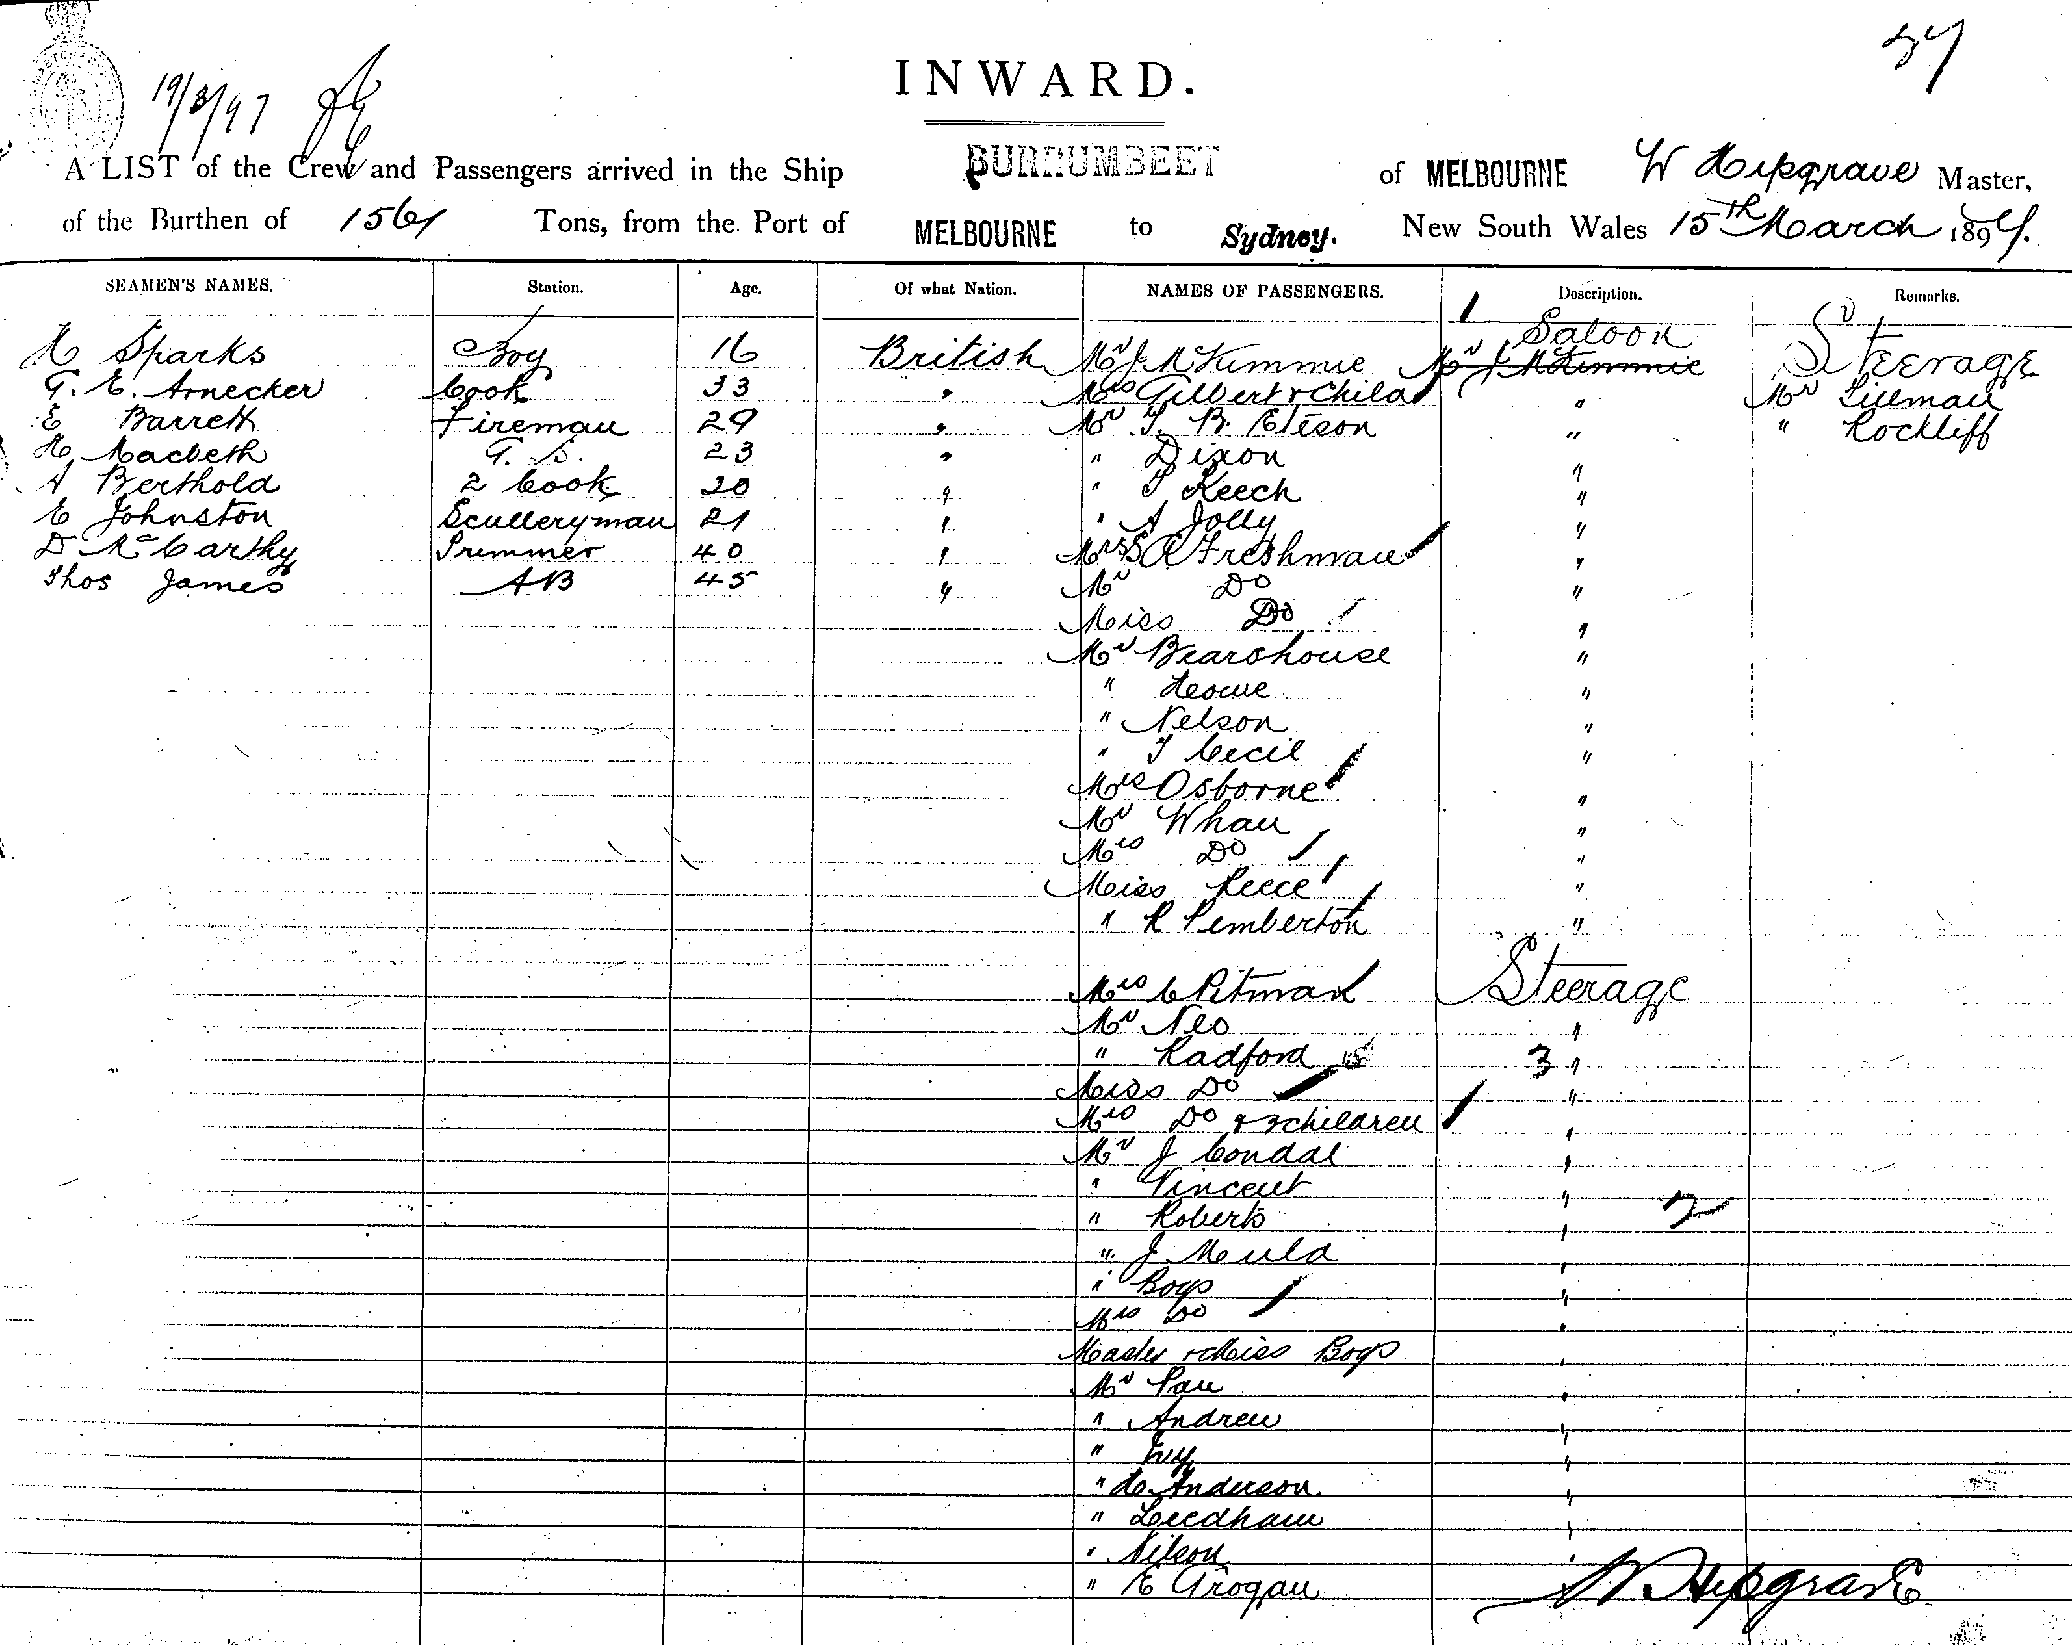 37
INWARD.
19/3/97
A LIST of the Crew and Passengers arrived in the Ship BURRUMBEET of MELBOURNE W Hipgrave Master,
of the Burthen of 1561 Tons, from the Port of MELBOURNE to Sydney. New South Wales 15th March 1897.
SEAMEN'S NAMES. Station. Age. Of what Nation. NAMES OF PASSENGERS. Description. Remarks.
1 Saloon Steerage
H Sparks Boy 16 British Mr J McKimmie Mr J McKimmie
G. E. Arnecker Cook 33 " Mrs Gilbert & Child " Mr Lilliman
E Barrett Fireman 29 " Mr T. B. Eteson " " Rockliff
H Macbeth G. S. 23 " " Dixon "
A Berthold 2 Cook 20 " " T Keech "
E Johnston Sculleryman 21 " " A Jolly "
D McCarthy Trimmer 40 " Mrs S A Freshman "
Thos James AB 45 " Mr Do "
Miss Do "
Mr Bearehouse "
" Howe "
" Nelson "
" T Cecil "
Mrs Osborne "
Mr Whan "
Mrs Do "
Miss Reece "
" R Pemberton "
Mrs C Pitman Steerage
Mr Neo "
" Radford 3 "
Miss Do "
Mrs Do & 3 children "
Mr J Condal "
" Vincent "
" Roberts " 2
" J Meuld "
" Boys "
Mrs Do "
Master & Miss Boys "
Mr Pan "
" Andrew "
" Ivy "
" H. Anderson "
" Leedham "
" Nilson "
" E Grogan
W Hipgrave